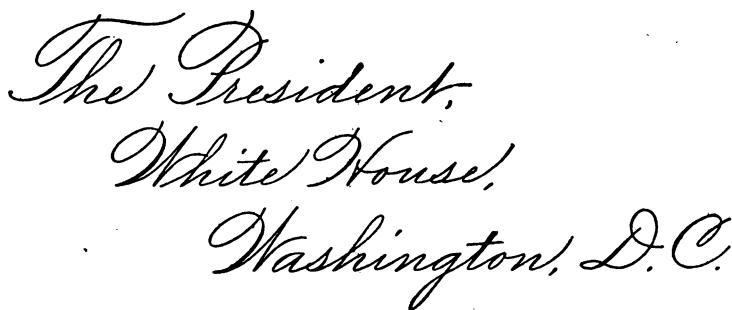 The President,
White House,
Washington, D.C.